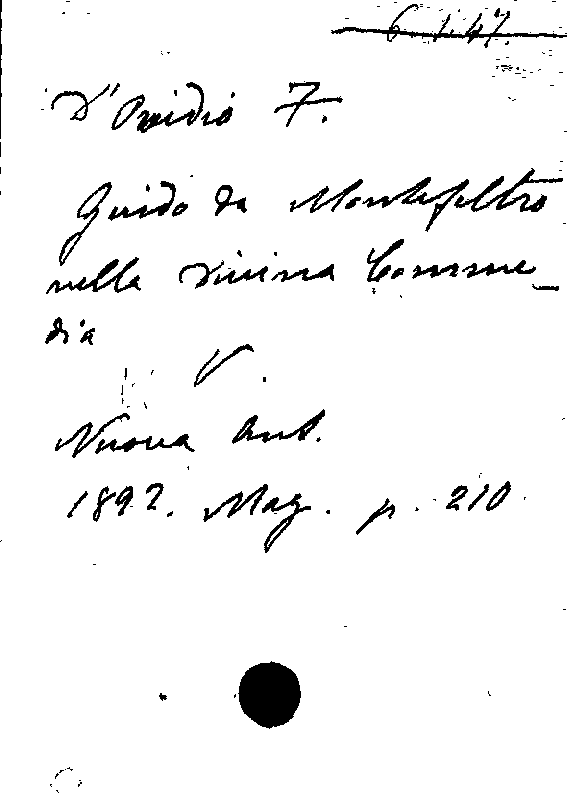 6.1.47.
D'Ovidio F.
Guido da Montefeltro
nella Divina Comme_
dia
V.
Nuova Ant.
1892. Mag. p. 210